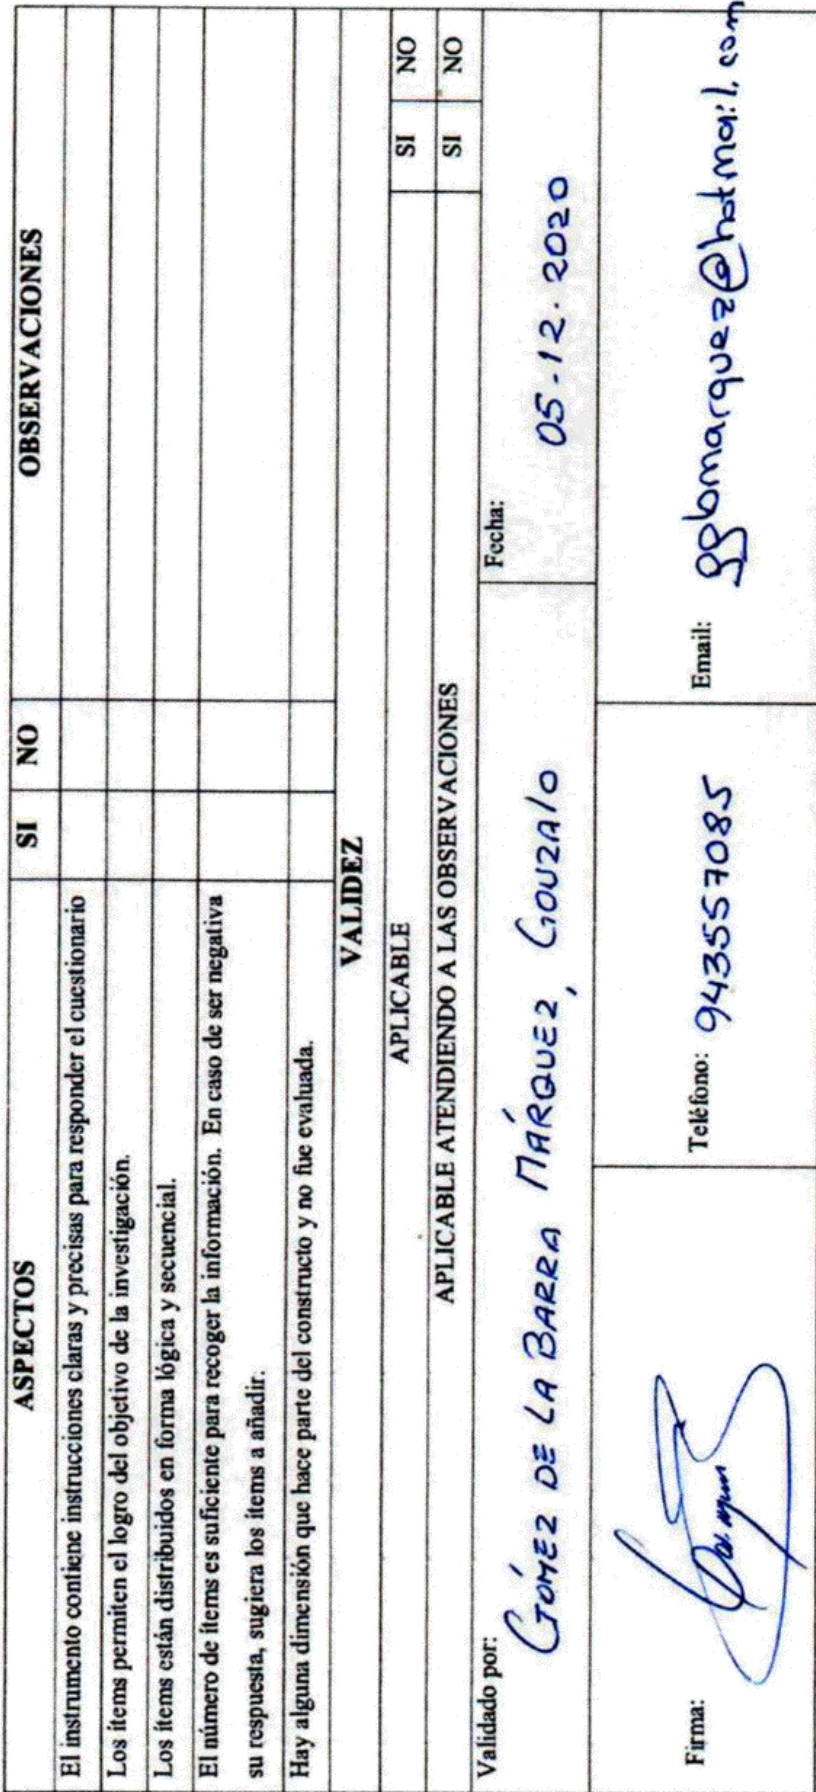 ASPECTOS SI NO OBSERVACIONES
El instrumento contiene instrucciones claras y precisas para responder el cuestionario
Los ítems permiten el logro del objetivo de la investigación.
Los ítems están distribuidos en forma lógica y secuencial.
El número de ítems es suficiente para recoger la información. En caso de ser negativa
su respuesta, sugiera los ítems a añadir.
Hay alguna dimensión que hace parte del constructo y no fue evaluada.
VALIDEZ
APLICABLE SI NO
APLICABLE ATENDIENDO A LAS OBSERVACIONES SI NO
Validado por: GÓMEZ DE LA BARRA MÁRQUEZ, GONZALO
Fecha: 05.12.2020
Firma:
Teléfono: 943557085
Email: ggbmarquez@hotmail.com